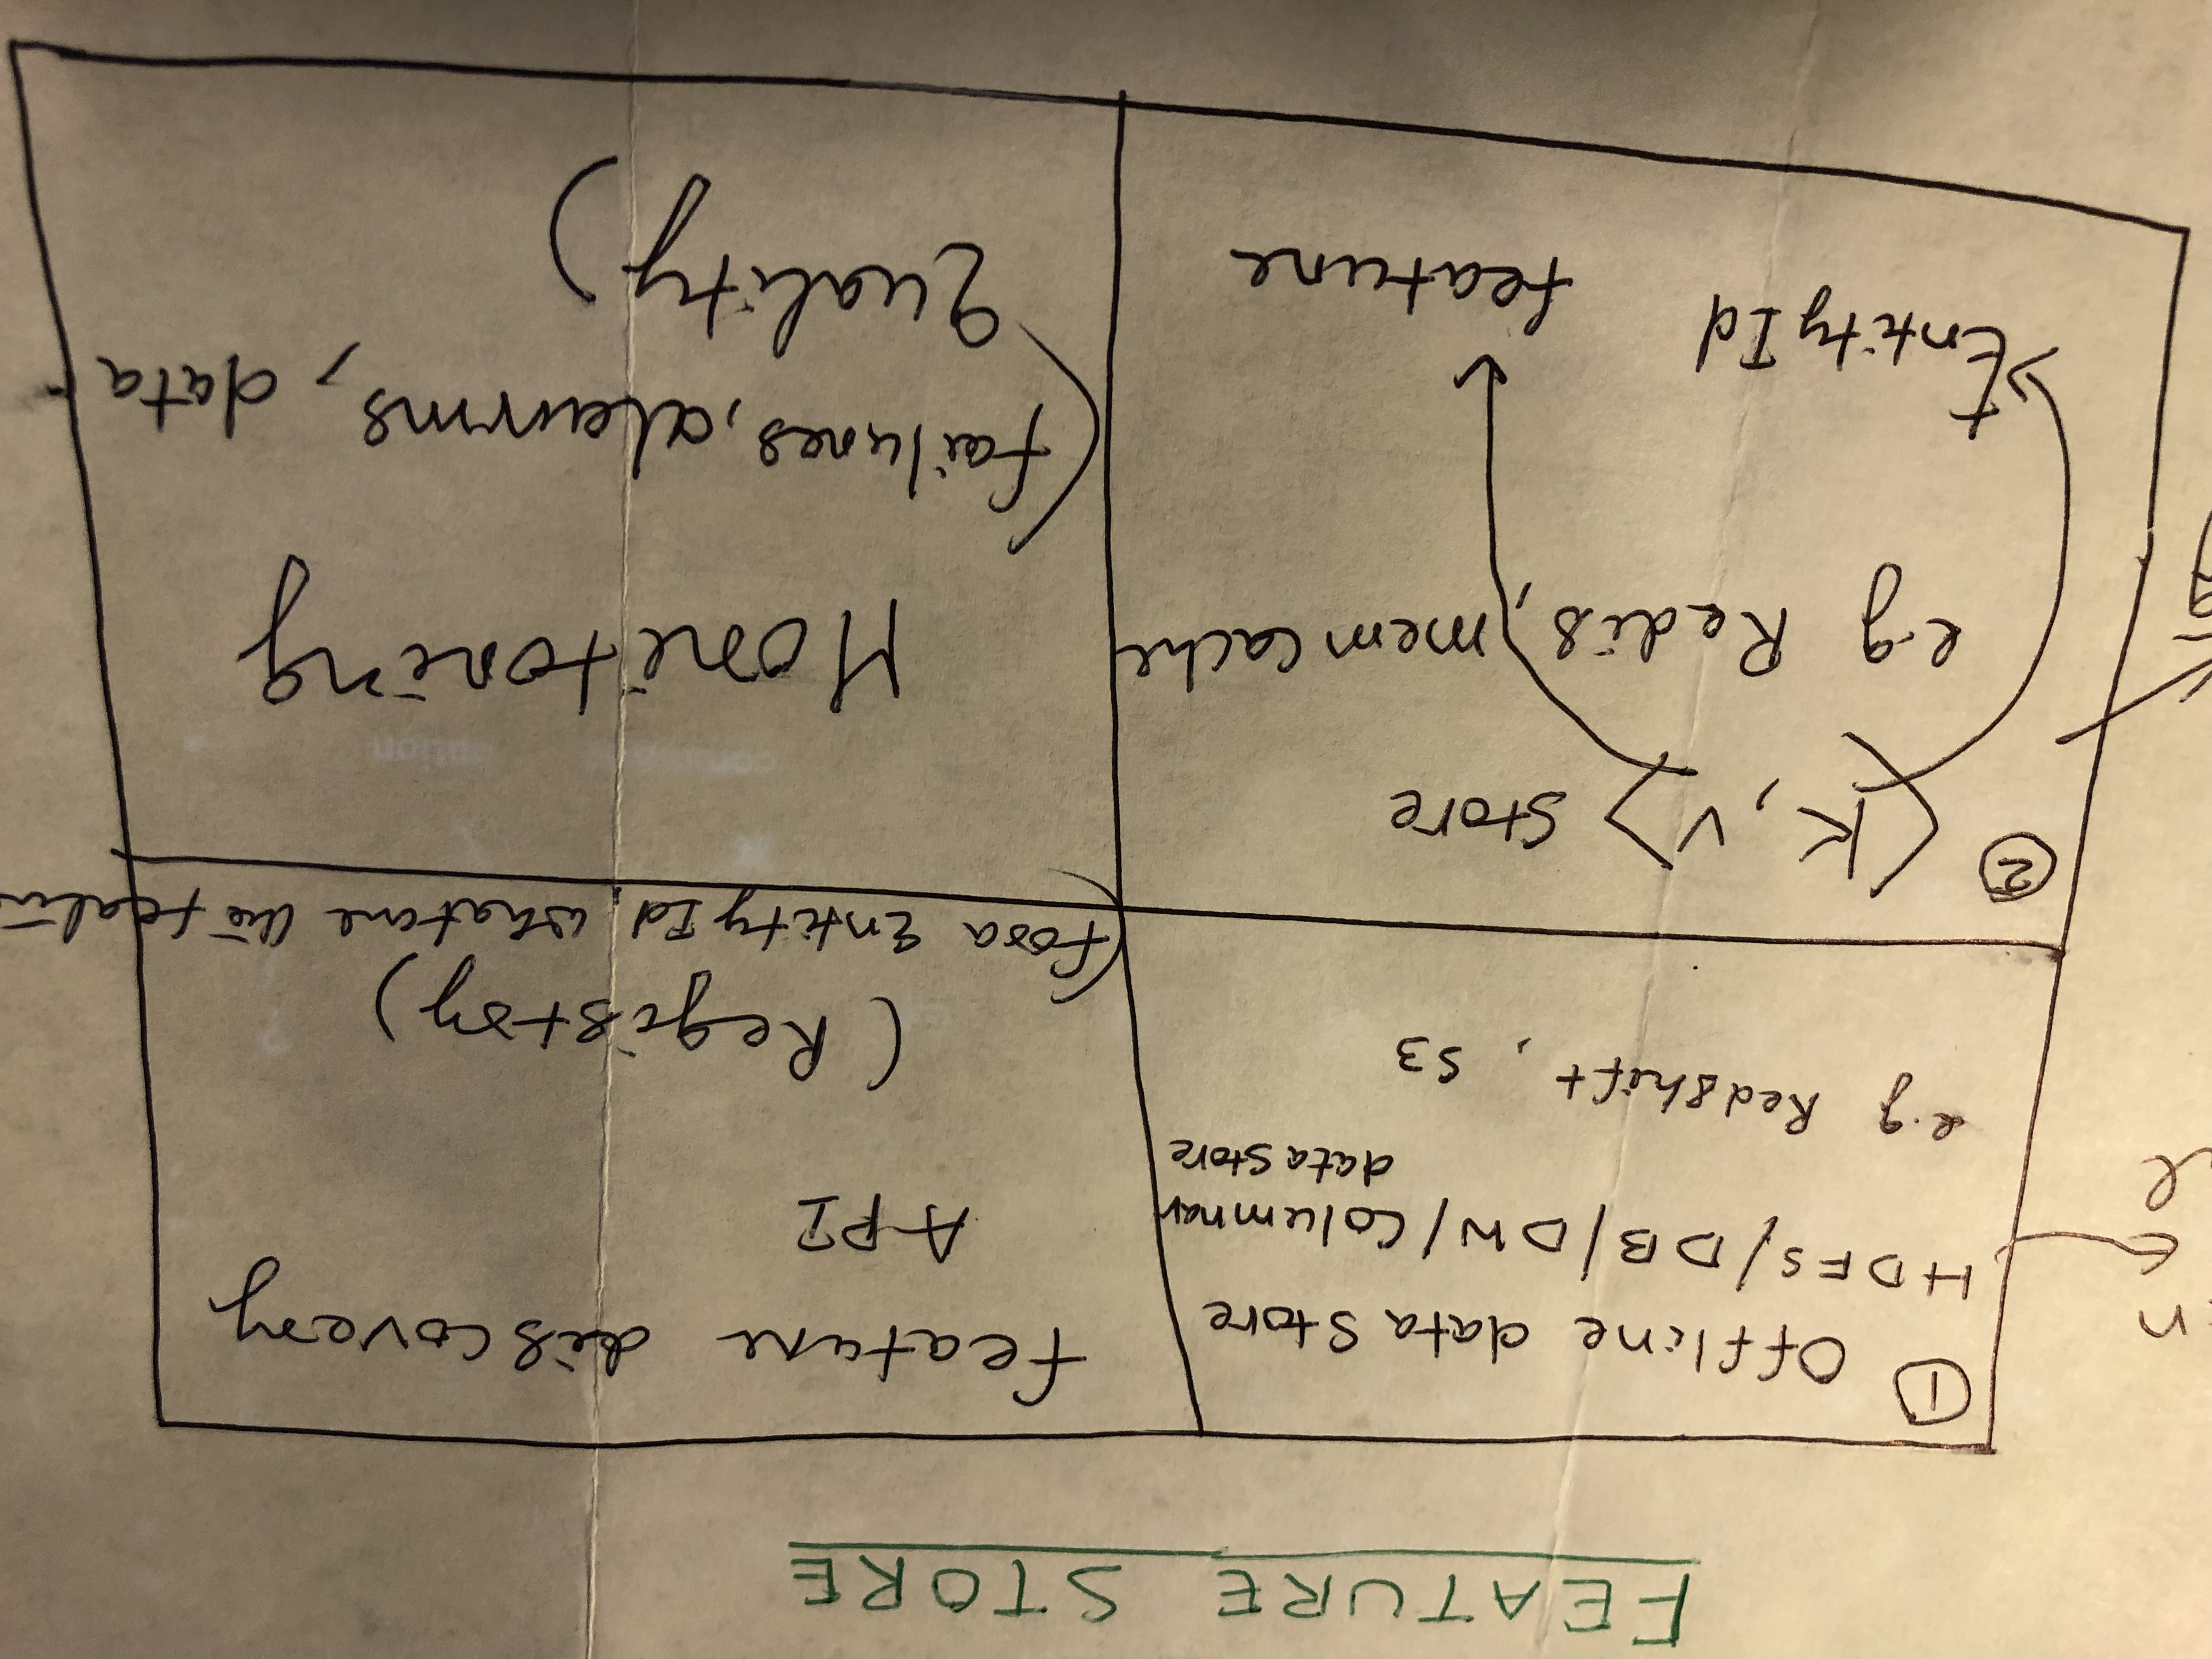 FEATURE STORE
① Offline data Store
HDFS/DB/DW/Columnar
data Store
e.g Redshift, S3
feature discovery
API
(Registry)
(for a Entity Id, what are the featu
② <K, V> Store
e.g Redis, memcache
Entity Id
feature
Monitoring
(failures, alarms, data
quality)
n
l
g